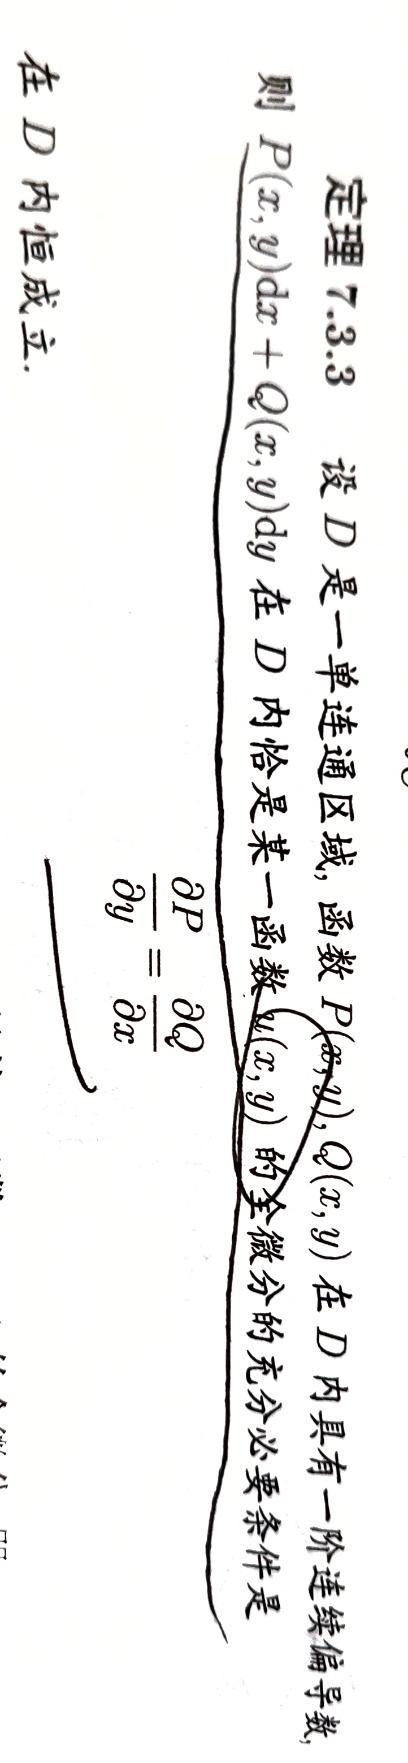 定理 7.3.3 设 D 是一单连通区域, 函数 P(x, y), Q(x, y) 在 D 内具有一阶连续偏导数,
则 P(x, y)dx + Q(x, y)dy 在 D 内恰是某一函数 u(x, y) 的全微分的充分必要条件是
∂P/∂y = ∂Q/∂x
在 D 内恒成立.